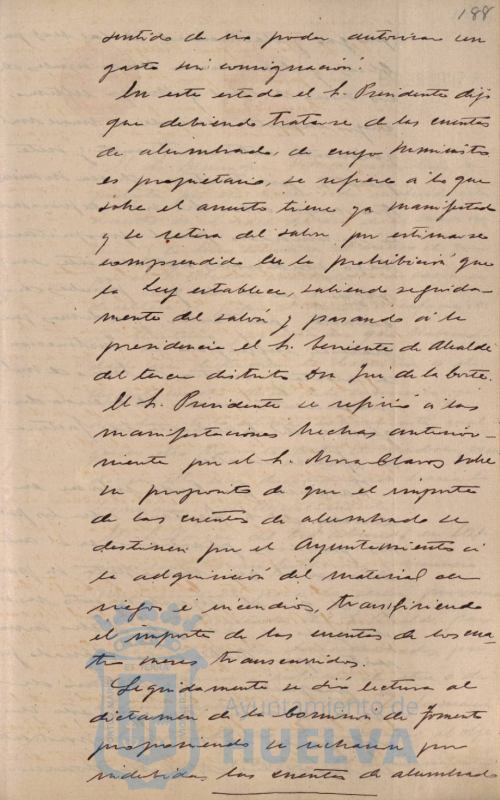 188
sentido de no poder autorizar un
gasto sin consignación.
En este estado el S. Presidente dijo
que debiendo tratarse de las cuentas
de alumbrado, de cuyo suministro
es propietario, se refiere a lo que
sobre el asunto tiene ya manifestado
y se retira del salon por estimarse
comprendido en la prohibición que
la Ley establece, saliendo seguida-
mente del salón y pasando á la
presidencia el S. Teniente de Alcalde
del tercer distrito Don José de la Corte.
El S. Presidente se refirió á las
manifestaciones hechas anterior-
mente por el S. Mora Claros sobre
su proposito de que el importe
de las cuentas de alumbrado se
destinen por el Ayuntamiento á
la adquisición del material de
riegos é incendios, transfiriendo
el importe de las cuentas de los cua-
tro meses transcurridos.
Seguidamente se dió lectura al
dictamen de la Comision de Fomento
proponiendo se rechacen por
indebidas las cuentas de alumbrado
Ayuntamiento de
HUELVA